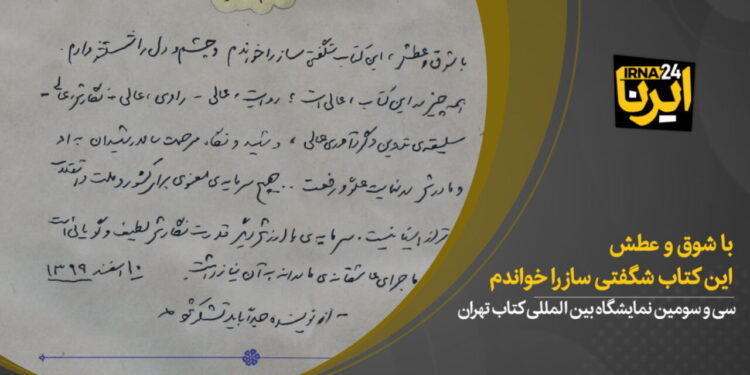 با شوق و عطش، این کتاب شگفتی ساز را خواندم و چشم و دل را شستشو دادم.
همه چیز در این کتاب، عالی است؛ روایت، عالی - راوی، عالی - نگارش، عالی -
سلیقه‌ی تدوین و گردآوری، عالی، و شهید و نگاه مرحمت سالار شهیدان به او
و مادرش در نهایت علوّ و رفعت .. هیچ سرمایه‌ی معنوی برای کشور و ملت و انقلاب
برتر از اینها نیست. سرمایه‌ی با ارزش دیگر قدرت نگارش لطیف و گویائی است
ماجرای عاشقانه‌ی مادرانه به آن نیاز داشت. ۱۰ اسفند ۱۳۹۹
- از نویسنده جداً باید تشکر شود -
IRNA24
ایرنا
با شوق و عطش
این کتاب شگفتی ساز را خواندم
سی و سومین نمایشگاه بین المللی کتاب تهران